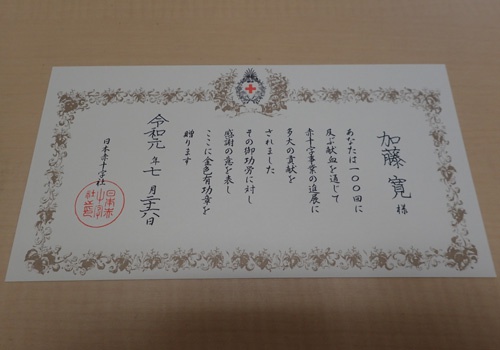 加藤寛 様
あなたは一〇〇回に
及ぶ献血を通じて
赤十字事業の進展に
多大の貢献を
されました
その御功労に対し
感謝の意を表し
ここに金色有功章を
贈ります
令和元年七月二十六日
日本赤十字社